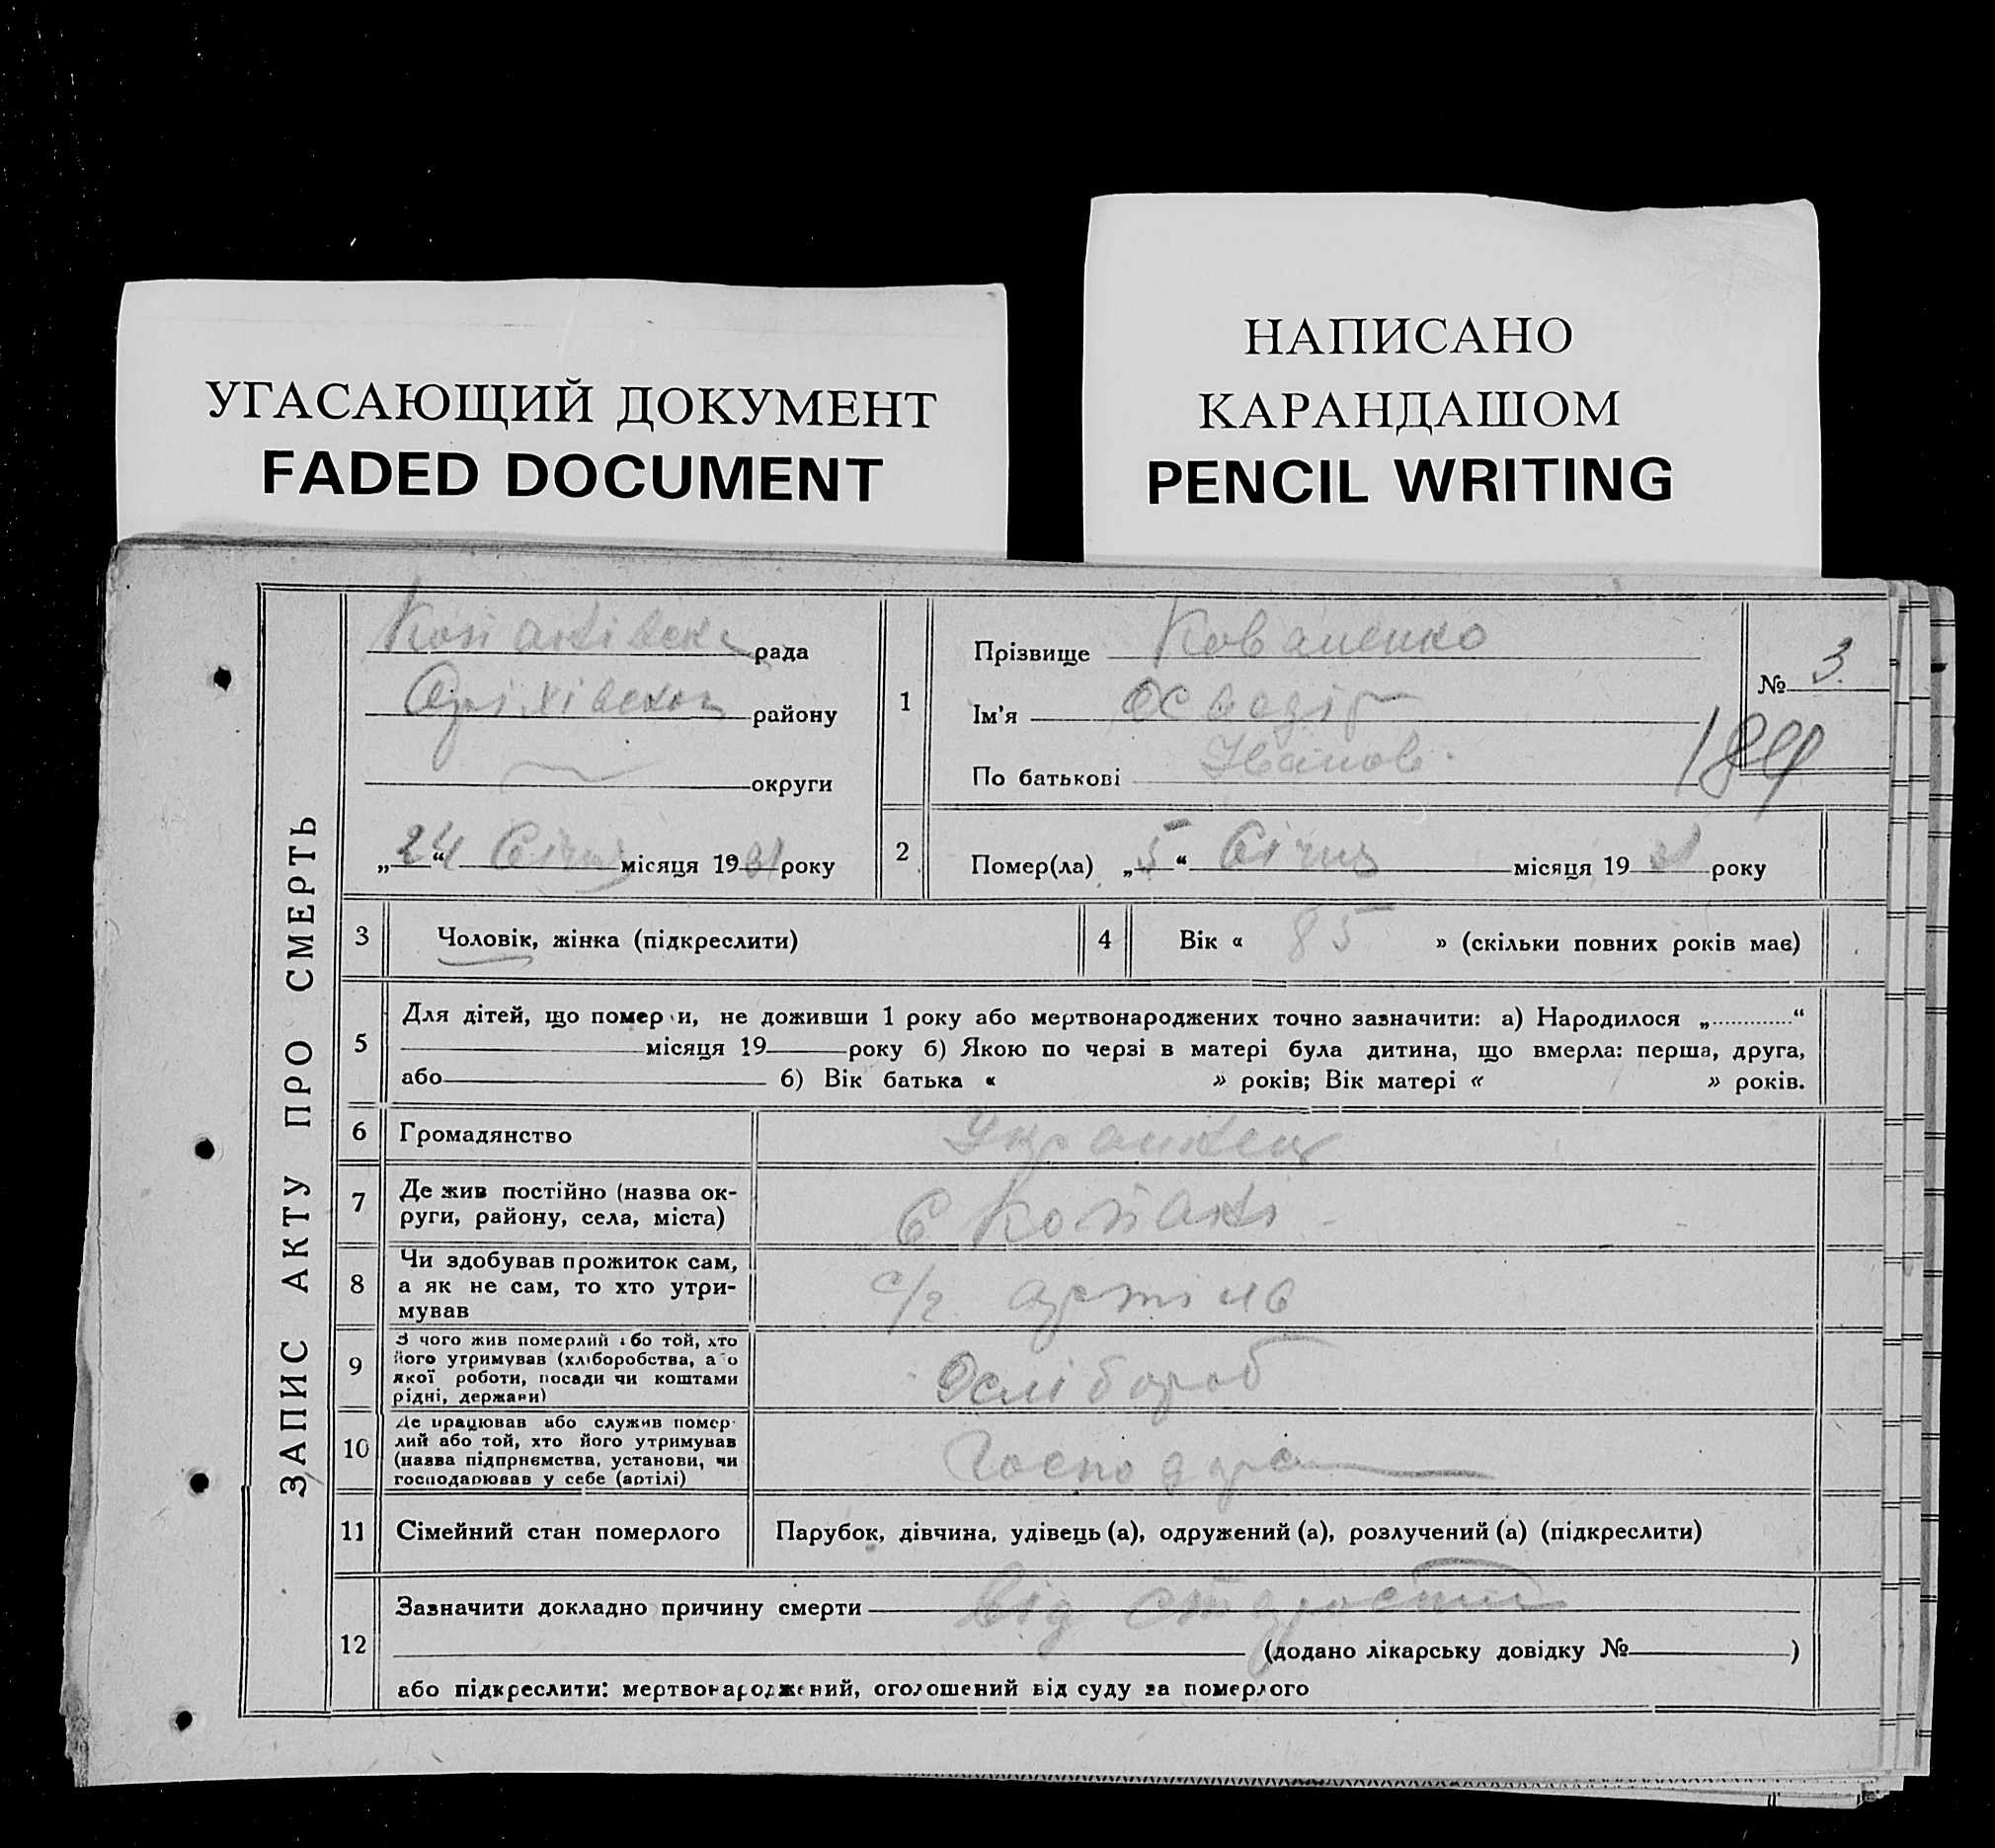 УГАСАЮЩИЙ ДОКУМЕНТ
FADED DOCUMENT
НАПИСАНО
КАРАНДАШОМ
PENCIL WRITING
ЗАПИС АКТУ ПРО СМЕРТЬ
рада
району
округи
„24“ Січня місяця 1931 року
1
Прізвище Коваленко
Ім'я
По батькові Іванов.
№ 3
2
Помер(ла) „5“ Січня місяця 1931 року
3
Чоловік, жінка (підкреслити)
4
Вік « 85 » (скільки повних років має)
5
Для дітей, що померли, не доживши 1 року або мертвонароджених точно зазначити: а) Народилося „ “
місяця 19 року б) Якою по черзі в матері була дитина, що вмерла: перша, друга,
або б) Вік батька « » років; Вік матері « » років.
6
Громадянство
7
Де жив постійно (назва ок-
руги, району, села, міста)
с Копані
8
Чи здобував прожиток сам,
а як не сам, то хто утри-
мував
с/г артіль
9
З чого жив померлий або той, хто
його утримував (хліборобства, або
якої роботи, посади чи коштами
рідні, держави)
10
Де працював або служив помер-
лий або той, хто його утримував
(назва підприємства, установи, чи
господарював у себе (артілі)
11
Сімейний стан померлого
Парубок, дівчина, удівець (а), одружений (а), розлучений (а) (підкреслити)
12
Зазначити докладно причину смерти від старости
(додано лікарську довідку № )
або підкреслити: мертвонароджений, оголошений від суду за померлого